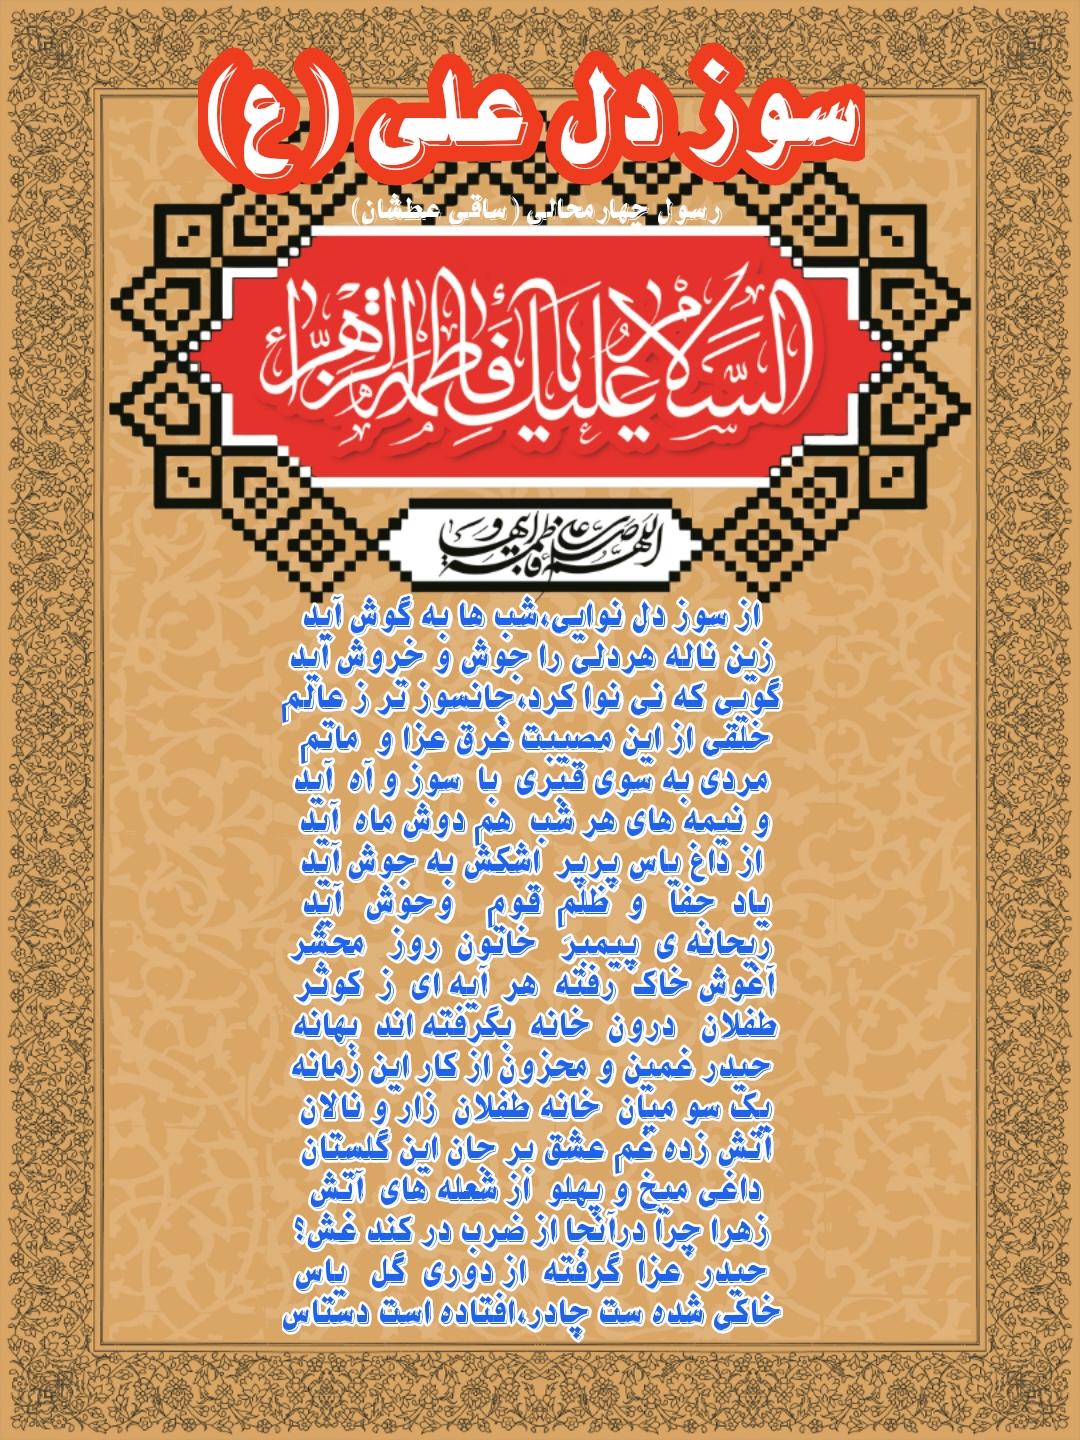 سوز دل علی (ع)
رسول چهارمحالی (ساقی عطشان)
السَّلامُ عَلَیکِ یا فاطِمَةُ الزَّهراء
اللهم صل علی فاطمة و ابیها و
از سوز دل نوایی،شب ها به گوش آید
زین ناله هردلی را جوش و خروش آید
گویی که نی نوا کرد،جانسوز تر ز عالم
خلقی از این مصیبت غرق عزا و ماتم
مردی به سوی قبری با سوز و آه آید
و نیمه های هر شب هم دوش ماه آید
از داغ یاس پرپر اشکش به جوش آید
یاد جفا و ظلم قوم وحوش آید
ریحانه ی پیمبر خاتون روز محشر
آغوش خاک رفته هر آیه ای ز کوثر
طفلان درون خانه بگرفته اند بهانه
حیدر غمین و محزون از کار این زمانه
یک سو میان خانه طفلان زار و نالان
آتش زده غم عشق بر جان این گلستان
داغی میخ و پهلو از شعله های آتش
زهرا چرا درآنجا از ضرب در کند غش؟
حیدر عزا گرفته از دوری گل یاس
خاکی شده ست چادر،افتاده است دستاس